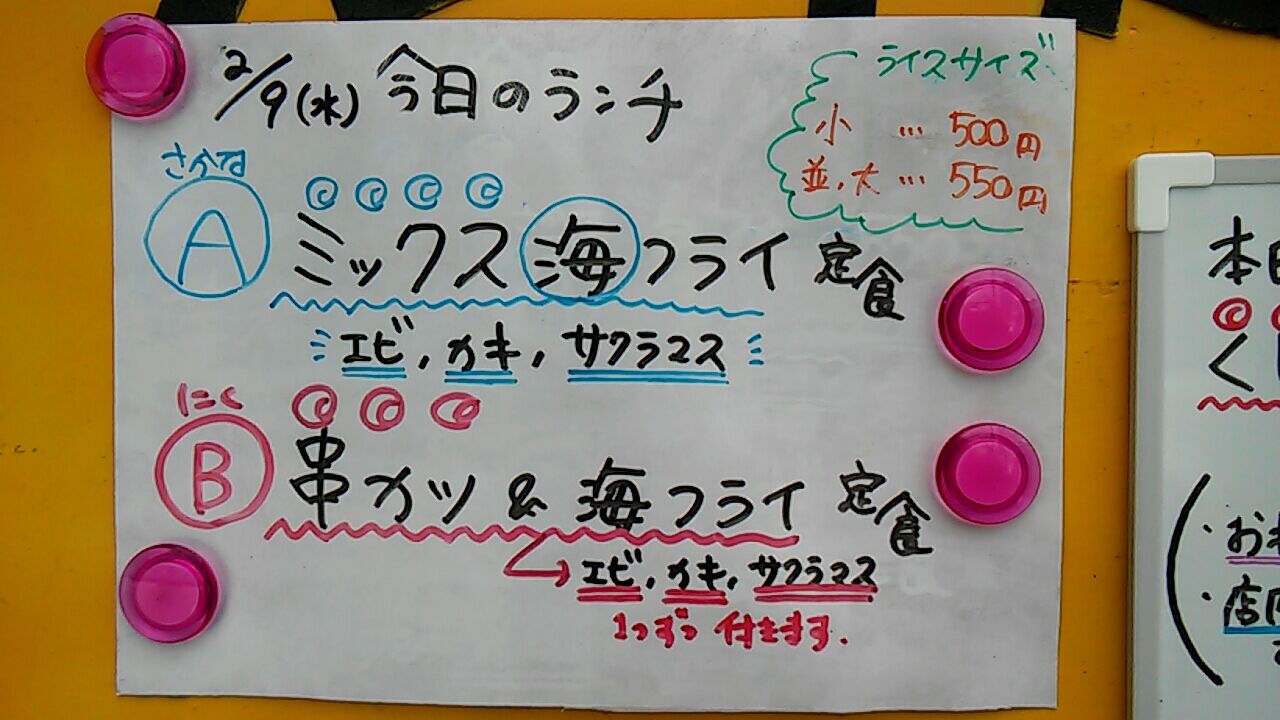 2/9(水) 今日のランチ
ライスサイズ
小 … 500円
並,大 … 550円
さかな
A ミックス海フライ定食
エビ,カキ,サクラマス
にく
B 串カツ & 海フライ定食
エビ,カキ,サクラマス
1つずつ付きます.
本日
く
(・お
・店内